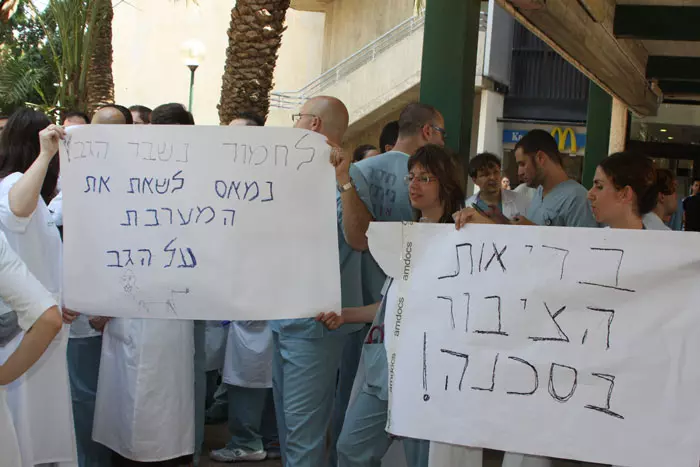 לחמור נשבר הגב!
נמאס לשאת את
המערכת
על הגב
בריאות
הציבור
בסכנה!
amdocs
amdocs
amdocs